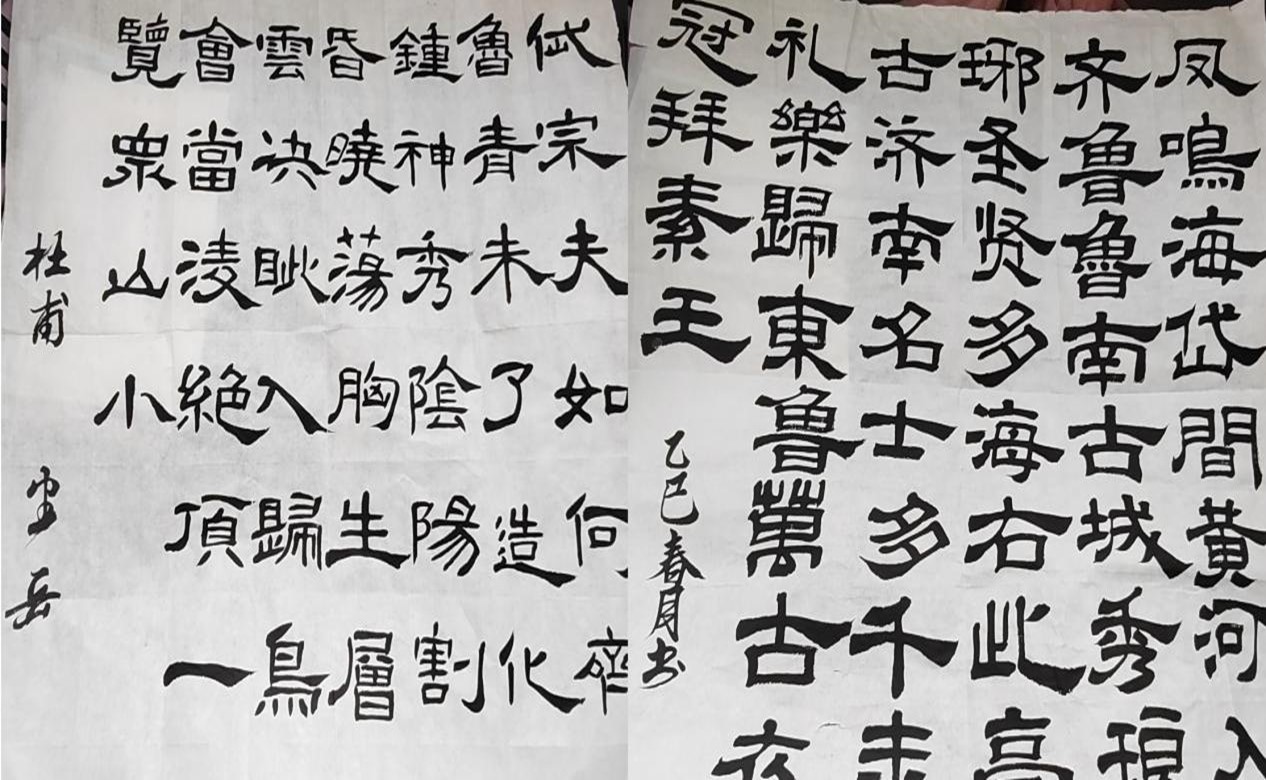 岱宗夫如何齊
魯青未了造化
鍾神秀陰陽割
昏曉蕩胸生層
雲決眦入歸鳥
會當淩絕頂一
覽衆山小
杜甫 望岳
凤鳴海岱間黄河入
齐魯魯南古城秀琅
琊圣贤多海右此亭
古济南名士多千年
礼樂歸東魯萬古衣
冠拜素王
乙巳春月书